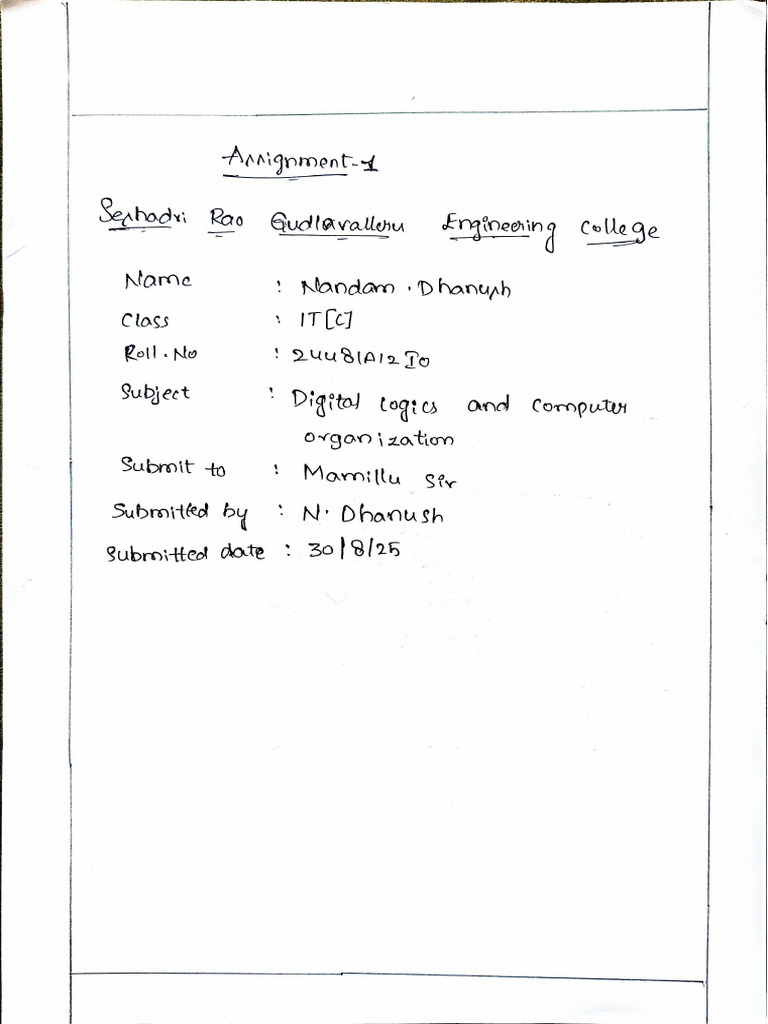 Assignment-1
Seshadri Rao Gudlavalleru Engineering College
Name : Nandam . Dhanush
Class : IT[C]
Roll . No : 24481A12I0
Subject : Digital logics and computer
organization
Submit to : Mamillu Sir
Submitted by : N. Dhanush
Submitted date : 30/8/25